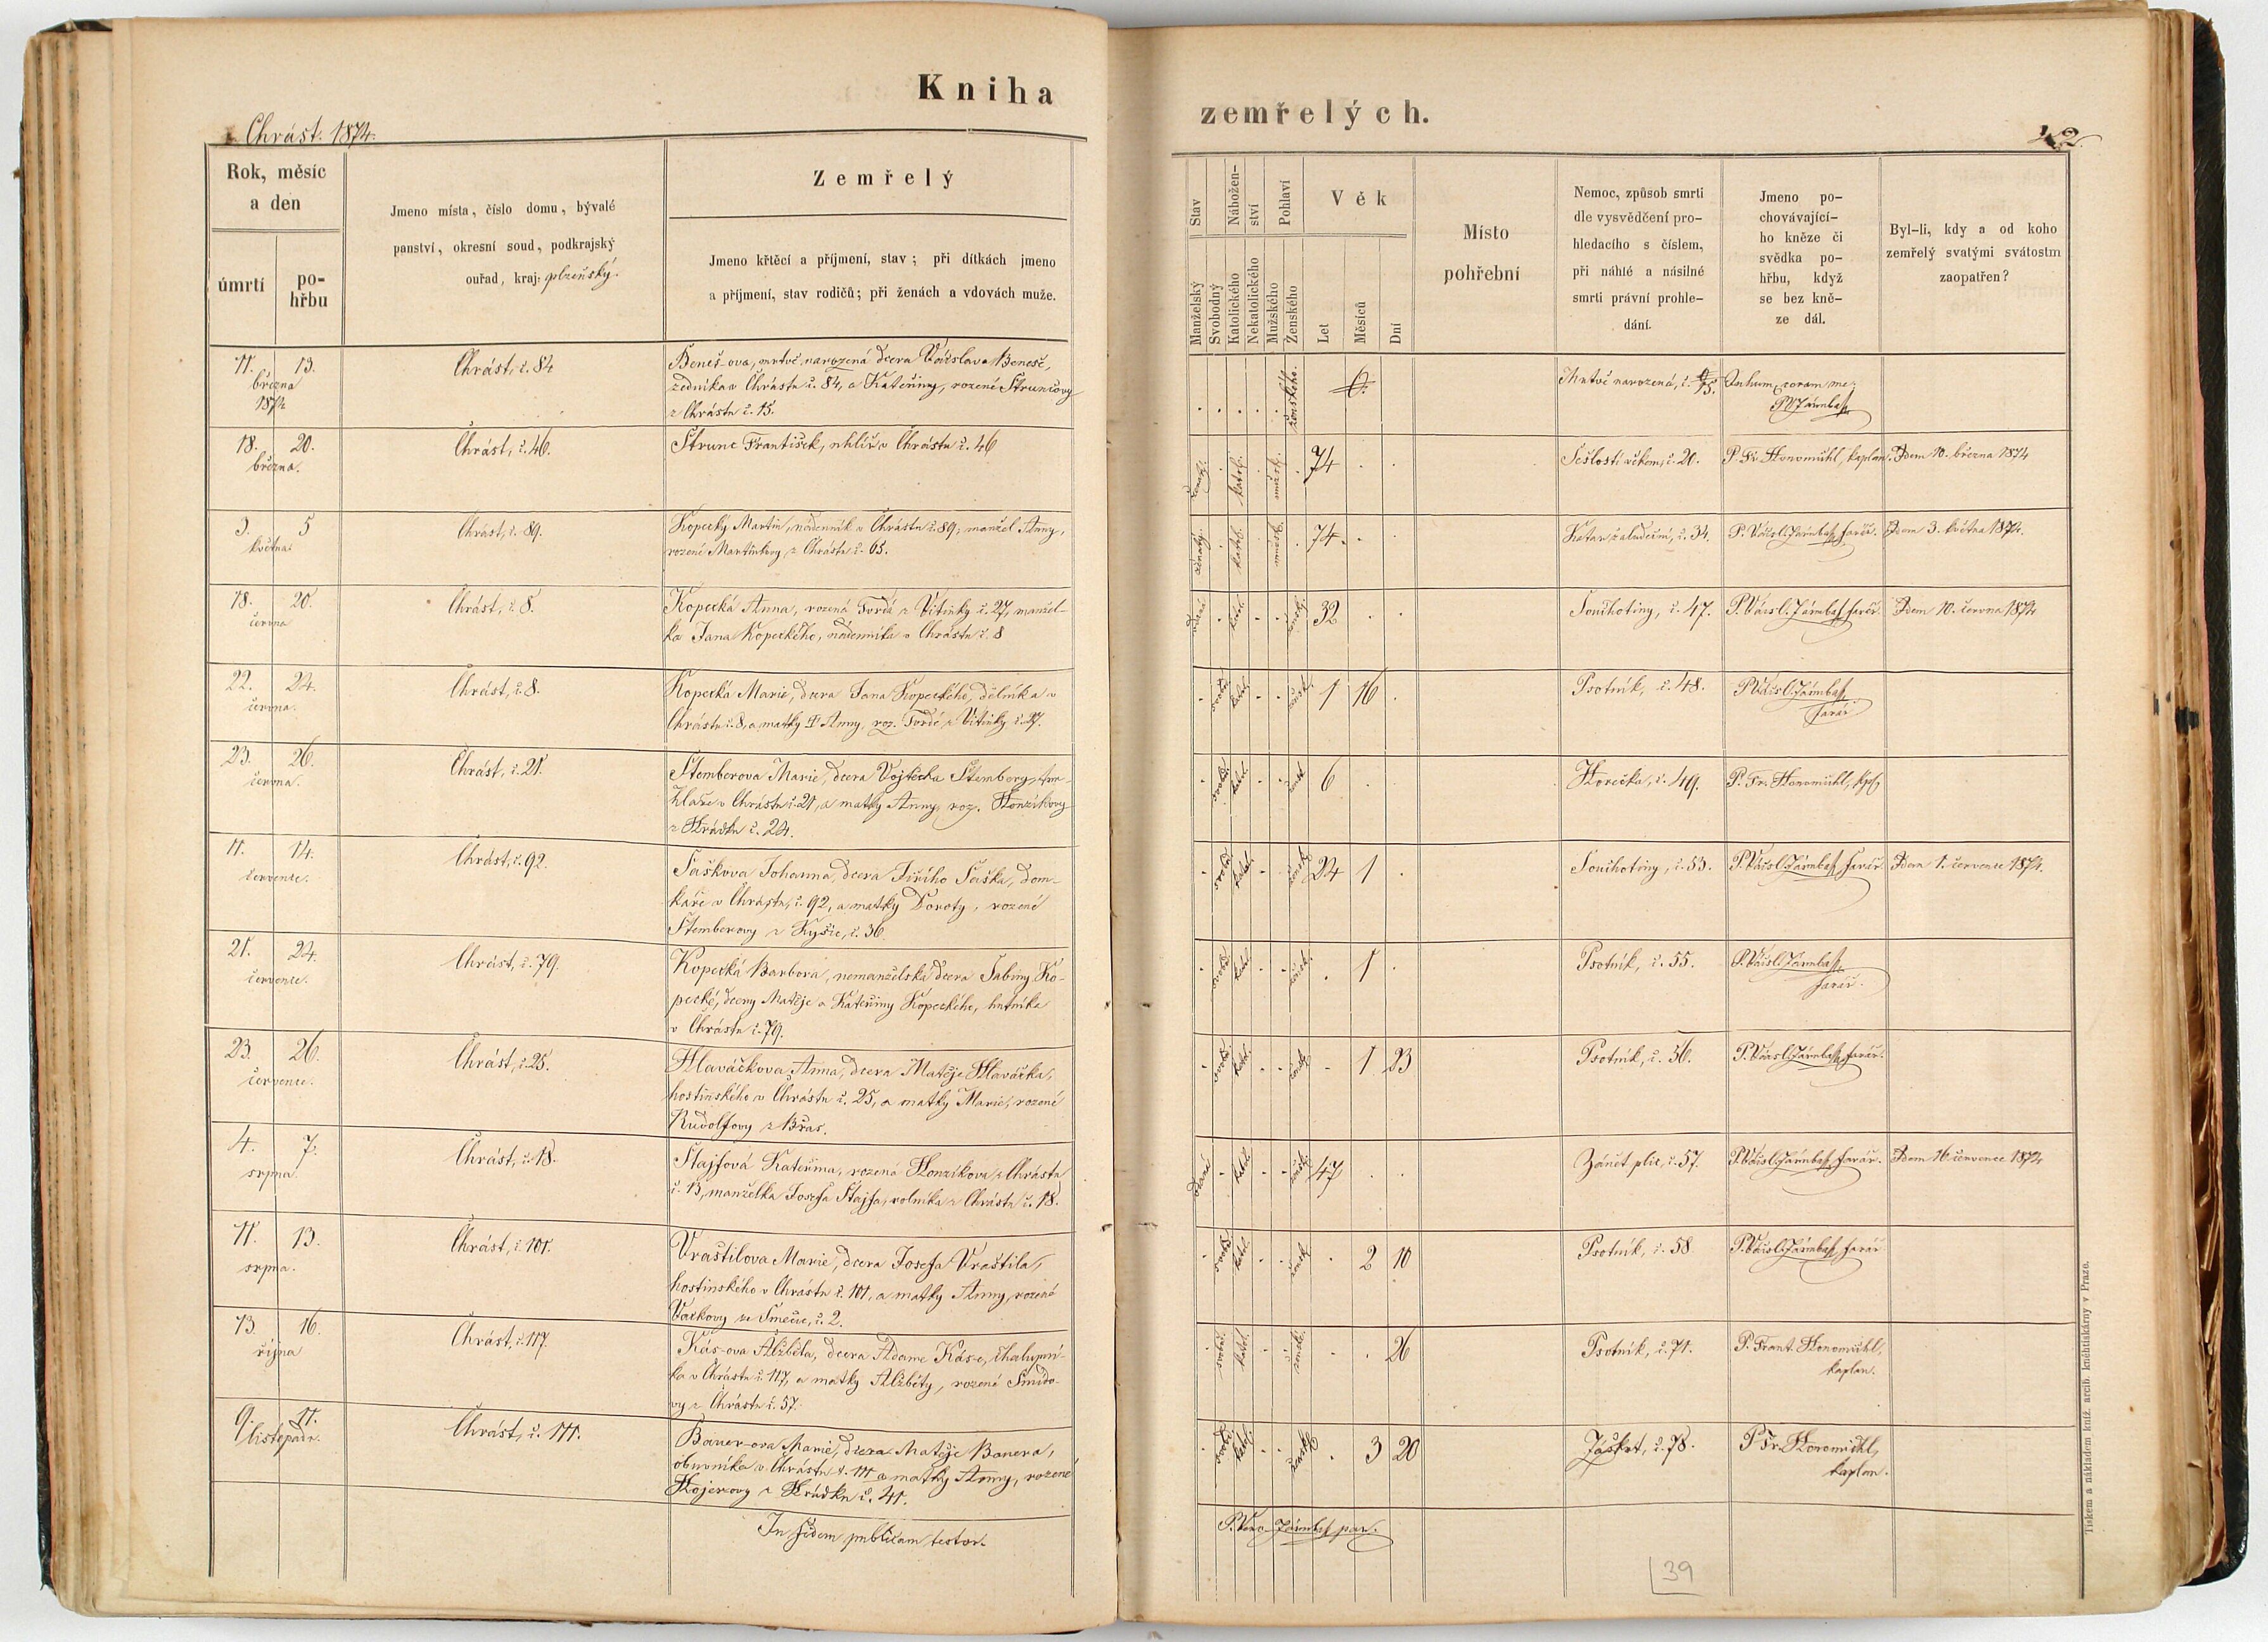 Kniha
zemřelých.
Chrást. 1874.
42.
Rok, měsíc
a den
úmrtí
po-
hřbu
Jmeno místa, číslo domu, bývalé
panství, okresní soud, podkrajský
ouřad, kraj: plzeňský.
Zemřelý
Jmeno křtěcí a příjmení, stav; při dítkách jmeno
a příjmení, stav rodičů; při ženách a vdovách muže.
Stav
Manželský
Svobodný
Nábožen-
ství
Katolického
Nekatolického
Pohlaví
Mužského
Ženského
Věk
Let
Měsíců
Dní
Místo
pohřební
Nemoc, způsob smrti
dle vysvědčení pro-
hledacího s číslem,
při náhlé a násilné
smrti právní prohle-
dání.
Jmeno po-
chovávající-
ho kněze či
svědka po-
hřbu, když
se bez kně-
ze dál.
Byl-li, kdy a od koho
zemřelý svatými svátostmi
zaopatřen?
11. 13.
března
1874
Chrást, č. 84
Beneš-ova, mrtvě narozená dcera Václava Beneše,
zedníka v Chrástu č. 84, a Kateřiny, rozené Štruncovy
z Chrástu č. 15.
ženského.
Mrtvě narozená, č. 15.
Inhum. coram me:
18. 20.
března.
Chrást, č. 46.
Štrunc František, uhlíř v Chrástu č. 46
katol. mužsk. 74
Sešlostí věkem, č. 20.
P. Fr. Honomühl, kaplan.
Idem 10. března 1874
3. 5
května.
Chrást, č. 89.
Kopecký Martin, nádenník v Chrástu č. 89; manžel Anny,
rozené Martínkovy z Chrástu č. 65.
ženatý. katol. mužsk. 74.
Katar žaludeční, č. 34.
farář.
Idem 3. května 1874.
18. 20.
června
Chrást, č. 8.
Kopecká Anna, rozená Tvrdá z Vitinky č. 27, manžel-
ka Jana Kopeckého, nádenníka v Chrástu č. 8
vdaná katol. žensk. 32
Souchotiny, č. 47.
farář.
Idem 10. června 1874
22. 24.
června.
Chrást, č. 8.
Kopecká Marie, dcera Jana Kopeckého, dělníka v
Chrástu č. 8, a matky † Anny, roz. Tvrdé z Vitinky č. 27.
svobod. katol. žensk. 1 16
Psotník, č. 48.
farář
23. 26.
června.
Chrást, č. 21.
Štemberova Marie, dcera Vojtěcha Štembery, tru-
hláře v Chrástu č. 21, a matky Anny, roz. Honzíkovy
z Hrádku č. 24.
svobod. katol. žensk. 6
Horečka, č. 49.
P. Fr. Honomühl, kpl.
11. 14.
července.
Chrást, č. 92.
Saškova Johanna, dcera Jiřího Saška, dom-
káře v Chrástu, č. 92, a matky Doroty, rozené
Štemberovy z Kyšic, č. 36.
svobod. katol. žensk. 24 1
Souchotiny, č. 53.
farář.
Idem 1. července 1874.
21. 24.
července.
Chrást, č. 79.
Kopecká Barbora, nemanželská dcera Sabiny Ko-
pecké, dcery Matěje a Kateřiny Kopeckého, hutníka
v Chrástu č. 79.
svobod. katol. žensk. 1
Psotník, č. 55.
farář.
23. 26.
července.
Chrást, č. 25.
Hlaváčkova Anna, dcera Matěje Hlaváčka,
hostinského v Chrástu č. 25, a matky Marie, rozené
Rudolfovy z Břas.
svobod. katol. žensk. 1 23
Psotník, č. 56.
farář.
4. 7.
srpna.
Chrást, č. 18.
Štajfová Kateřina, rozená Honzíkova z Chrástu
č. 13, manželka Josefa Štajfa, rolníka z Chrástu č. 18.
vdaná katol. žensk. 47
Zánět plic, č. 57.
farář.
Idem 16. července 1874
11. 13.
srpna.
Chrást, č. 101.
Vraštilova Marie, dcera Josefa Vraštila,
hostinského v Chrástu č. 101, a matky Anny, rozené
Vackovy ze Smečic, č. 2.
svobod. katol. žensk. 2 10
Psotník, č. 58
farář
13. 16.
října
Chrást, č. 117.
Kás-ova Alžběta, dcera Adama Kás-e, chalupní-
ka v Chrástu č. 117, a matky Alžběty, rozené Šmído-
vy z Chrástu č. 57.
svobod. katol. žensk. 26
Psotník, č. 71.
P. Frant. Honomühl,
kaplan.
9. 11.
listopadu.
Chrást, č. 111.
Bauer-ova Marie, dcera Matěje Bauera,
obuvníka v Chrástu č. 111 a matky Anny, rozené
Hojerovy z Hrádku č. 41.
svobod. katol. žensk. 3 20
č. 78.
P. Fr. Honomühl,
kaplan.
In fidem publicam testor.
39
Tiskem a nákladem kníž. arcib. kněhtiskárny v Praze.